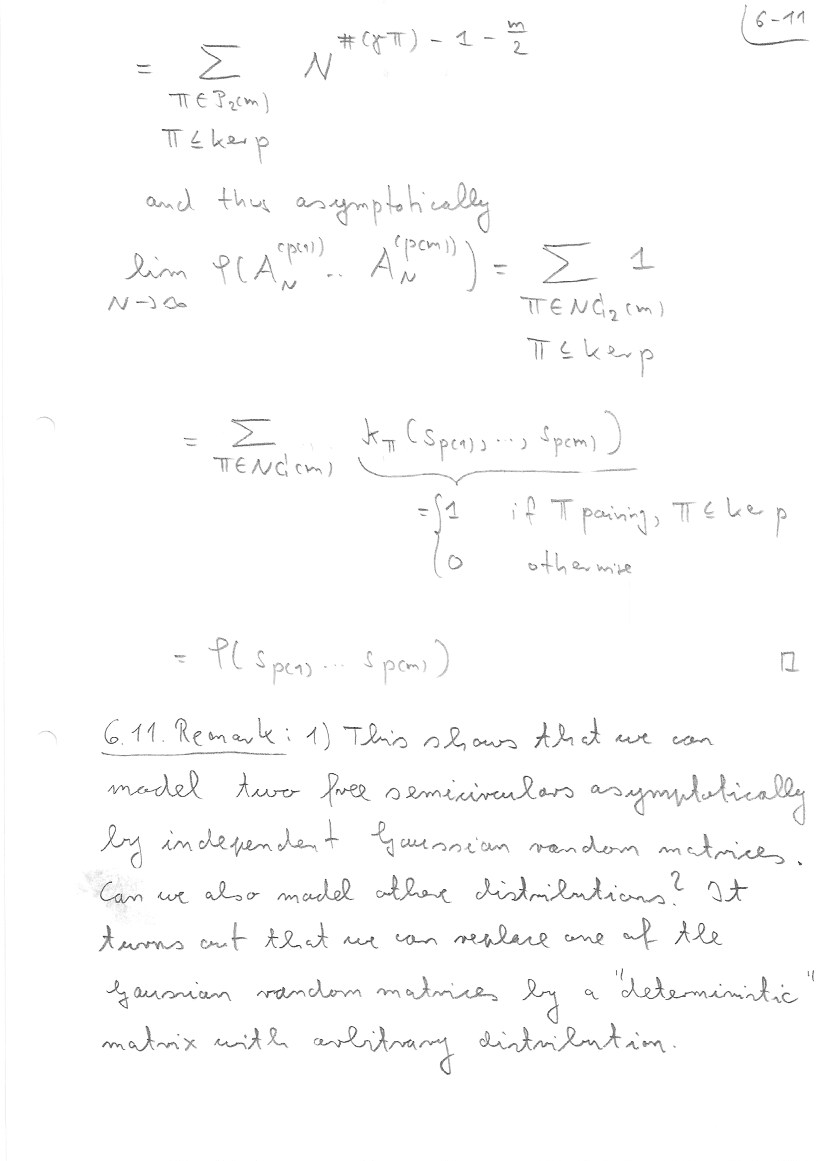 6-11
= ∑ N^{#(γπ) - 1 - m/2}
π∈P₂(m)
π ≤ ker p
and thus asymptotically
lim φ(A_N^{(p(1))} .. A_N^{(p(m))}) = ∑ 1
N→∞ π∈NC₂(m)
π ≤ ker p
= ∑ k_π(s_{p(1)}, .., s_{p(m)})
π∈NC(m)
= { 1 if π pairing, π ≤ ker p
0 otherwise
= φ(s_{p(1)} ... s_{p(m)}) □
6.11. Remark: 1) This shows that we can
model two free semicirculars asymptotically
by independent Gaussian random matrices.
Can we also model other distributions? It
turns out that we can replace one of the
Gaussian random matrices by a "deterministic"
matrix with arbitrary distribution.